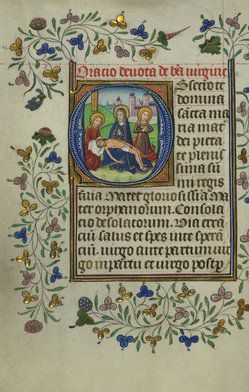 Oracio deuota de bta uirgine
Obsecro te
domina
sancta ma
ria mat
dei pieta
te plenis
sima sum
mi regis
filia Mater gloriosissima
ter orphanorum. Consola
cio desolatorum. Via erra
ciū salus et spes in te spera
ciū. uirgo ante partum uir
go in partu et uirgo post p